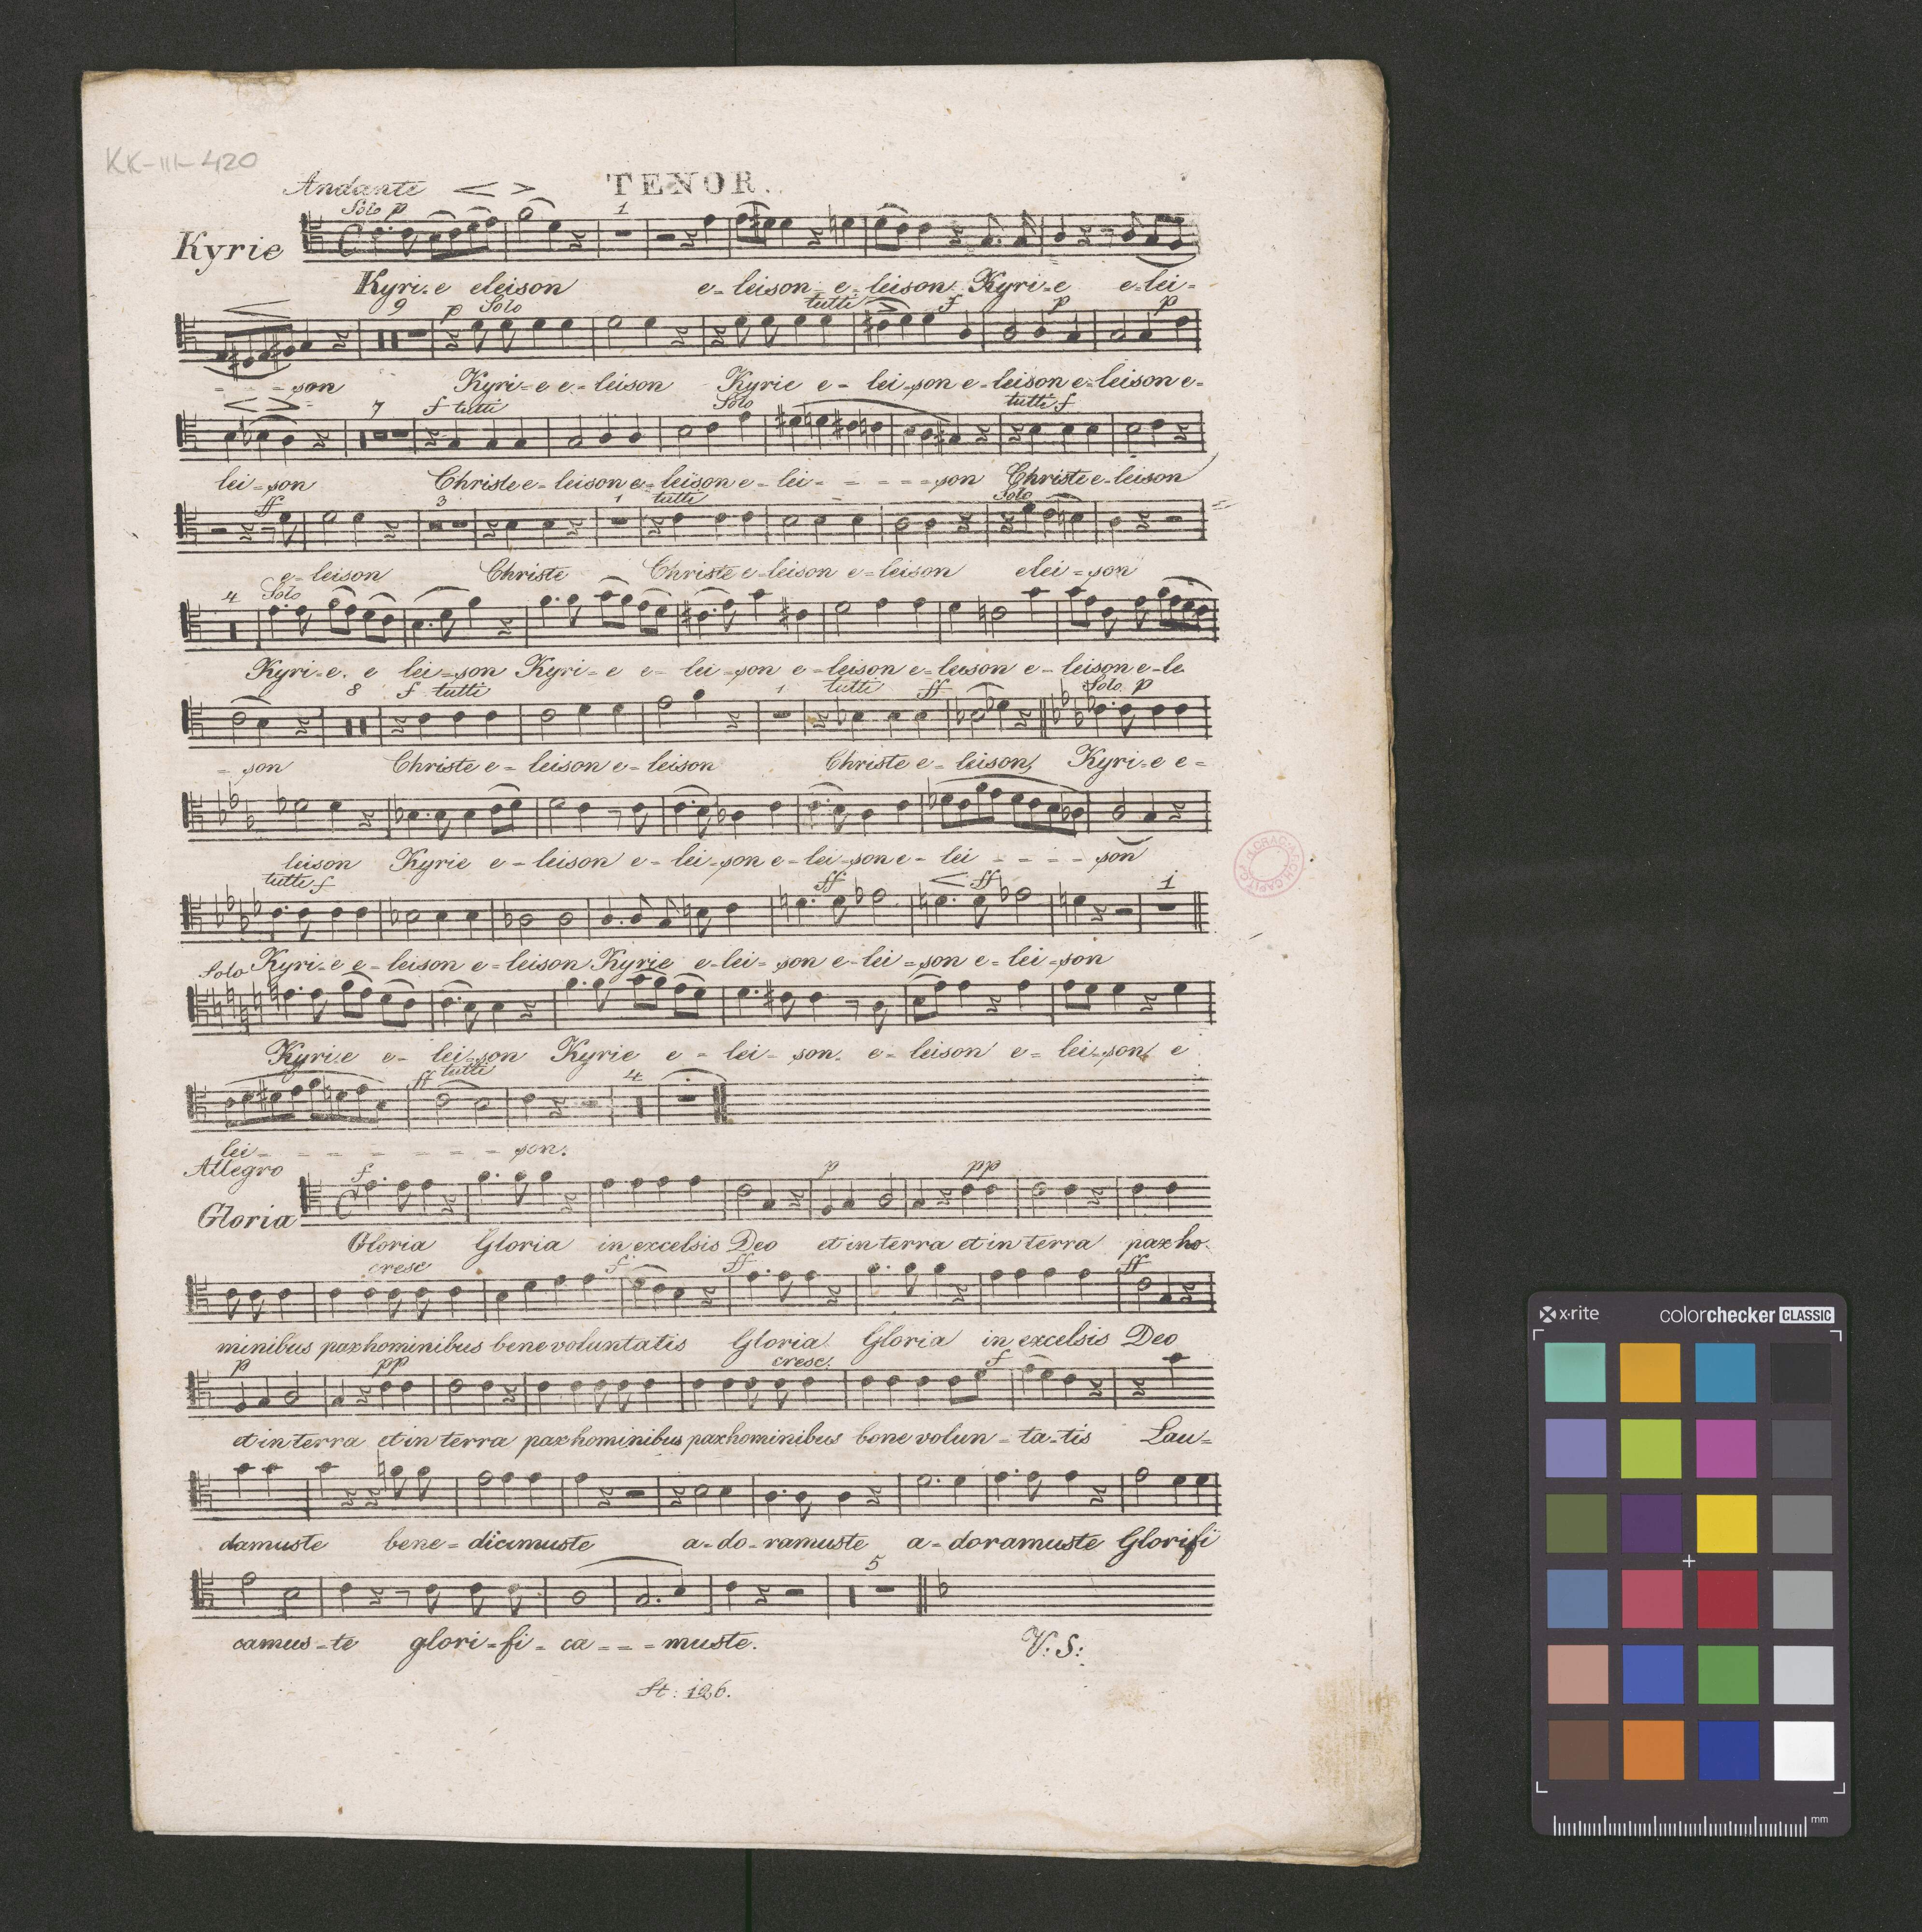 KK-III-420
Andante TENOR.
Solo p 1
Kyrie
Kyri-e eleison e-leison e-leison Kyri-e e-lei-
9 p Solo tutti f p p
- - - son Kyri-e e-leison Kyrie e-lei-son e-leison e-leison e-
7 f tutti Solo tutti f
lei-son Christe e-leison e-leison e-lei- - - - - son Christe e-leison
ff 3 1 tutti Solo
e-leison Christe Christe e-leison e-leison elei-son
4 Solo
Kyri-e e lei-son Kyri-e e-lei-son e-leison e-leison e-leison e-le
8 f tutti 1 tutti ff Solo p
- son Christe e-leison e-leison Christe e-leison Kyri-e e-
leison Kyrie e-leison e-lei-son e-lei-son e-lei - - - - son
tutti f ff ff 1
Kyri-e e-leison e-leison Kyrie e-lei-son e-lei-son e-lei-son
Solo
Kyri.e e-lei-son Kyrie e-lei-son. e-leison e-lei-son e
ff tutti 4
lei- - - - - - - - son.
Allegro f p pp
Gloria
Gloria Gloria in excelsis Deo et in terra et in terra pax ho-
cresc f ff ff
minibus pax hominibus bene voluntatis Gloria Gloria in excelsis Deo
p pp cresc. f
et in terra et in terra pax hominibus pax hominibus bone volun-ta-tis Lau-
damuste bene-dicimuste a-do-ramuste a-doramuste Glorifi
5
camus-te glori-fi-ca - - - muste.
V: S:
St: 126.
x·rite colorchecker CLASSIC
mm